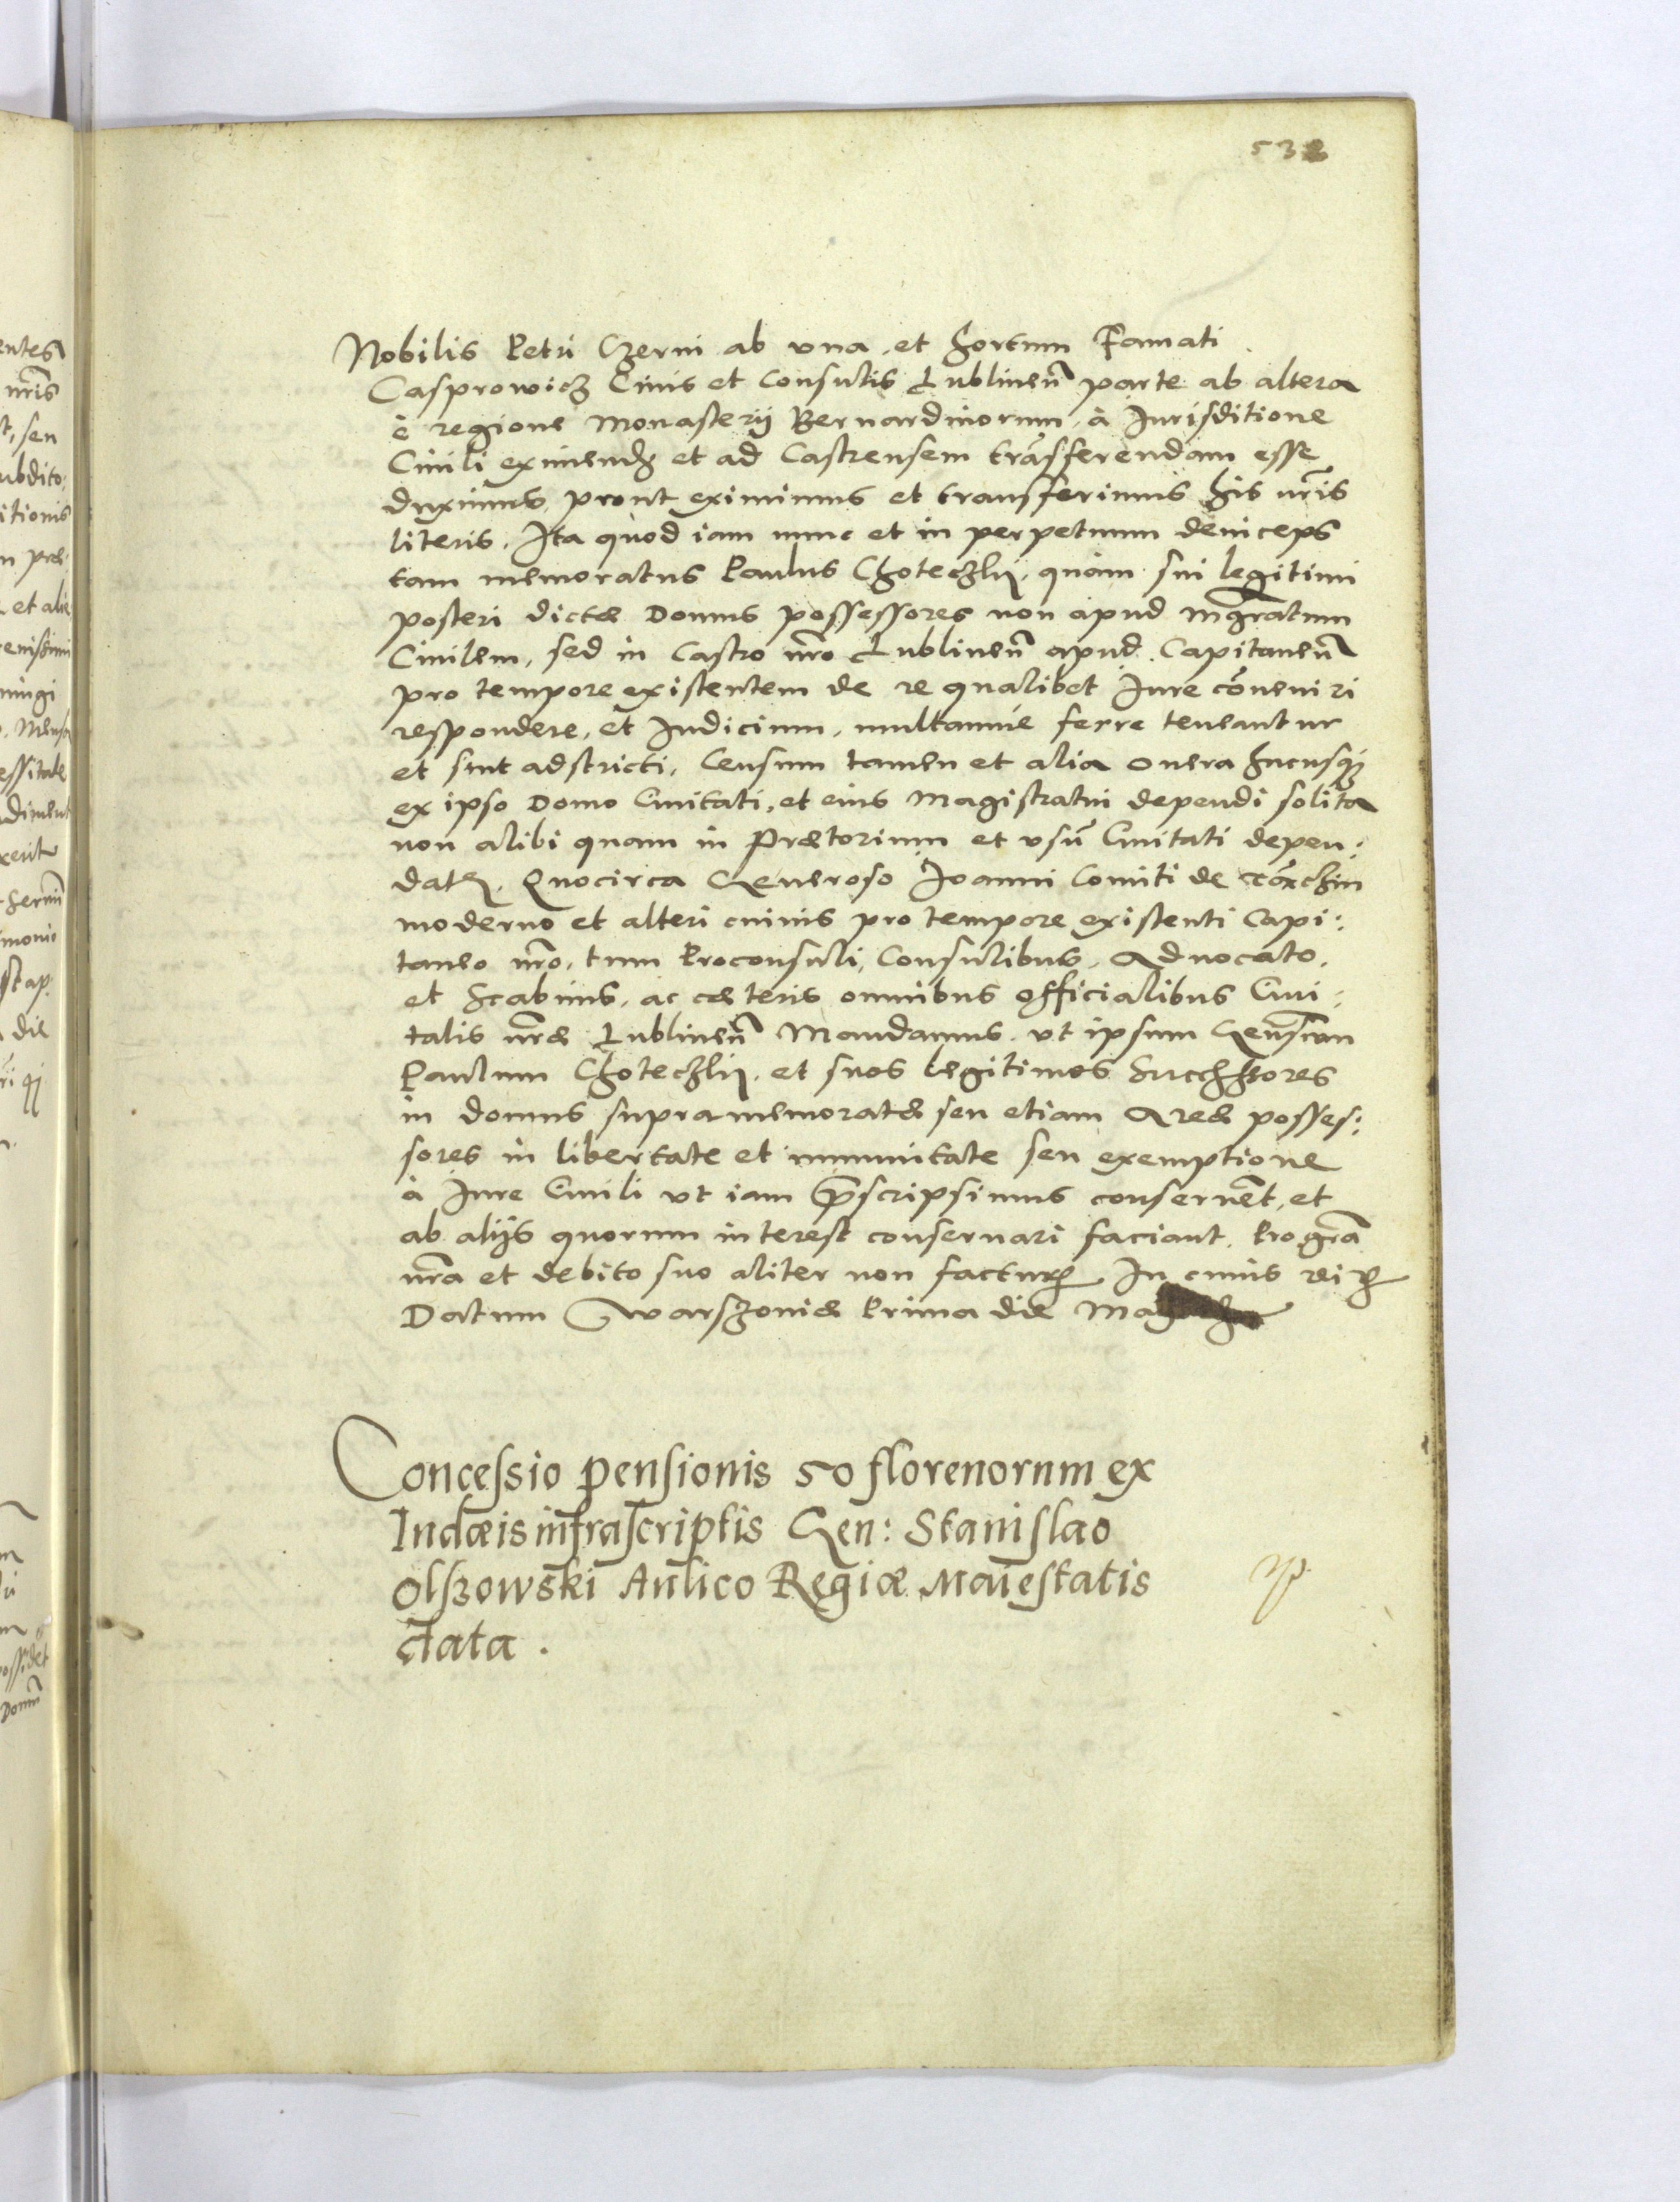 532
Nobilis Petri Czerni ab vna, et hortum Famati
Casprowicz Civis et Consulis Lublinen̄ parte ab altera
è regione Monasterij Bernardinorum, à Jurisditione
Civili eximendā et ad Castrensem trāsferendam esse
duximus, prout eximimus et transferimus his nr̄is
literis. Ita quod iam nunc et in perpetuum deinceps
tam memoratus Paulus Choteczkij, quàm sui legitimi
posteri dictæ Domus possessores non apud Mgr̄atum
Civilem, sed in Castro nr̄o Lublinen̄ apud Capitanen̄
pro tempore existentem de re qualibet Jure cōveniri
respondere, et Judicium, multamúe ferre teneantur
et sint adstricti, Censum tamen et alia onera hucusq
ex ipso Domo Civitati, et eius Magistratui dependi solita
non alibi quam in Prætorium et vsū Civitati depen:
datꝭ. Quocirca Generoso Joanni Comiti de Tēchin
moderno et alteri cuivis pro tempore existenti Capi:
taneo nr̄o, tum Proconsuli, Consulibus, Aduocato,
et Scabinis, ac cæteris omnibus officialibus Civi:
tatis nr̄æ Lublinen̄ Mandamus, vt ipsum
Paulum Choteczkij, et suos legitimos Successores
in domus supra memoratæ seu etiam Areæ posses:
sores in libertate et immunitate seu exemptione
à Jure Civili vt iam p̄scripsimus conseruēt, et
ab alijs quorum interest conseruari faciant. Pro gr̄a
nr̄a et debito suo aliter non facturꝭ. In cuius rei ꝭ
Datum Warszoviæ Prima die Maij
Concessio pensionis 50 florenorum ex
Iudæis infrascriptis Gen: Stanislao
Olszowski Aulico Regiæ Maiestatis
data.